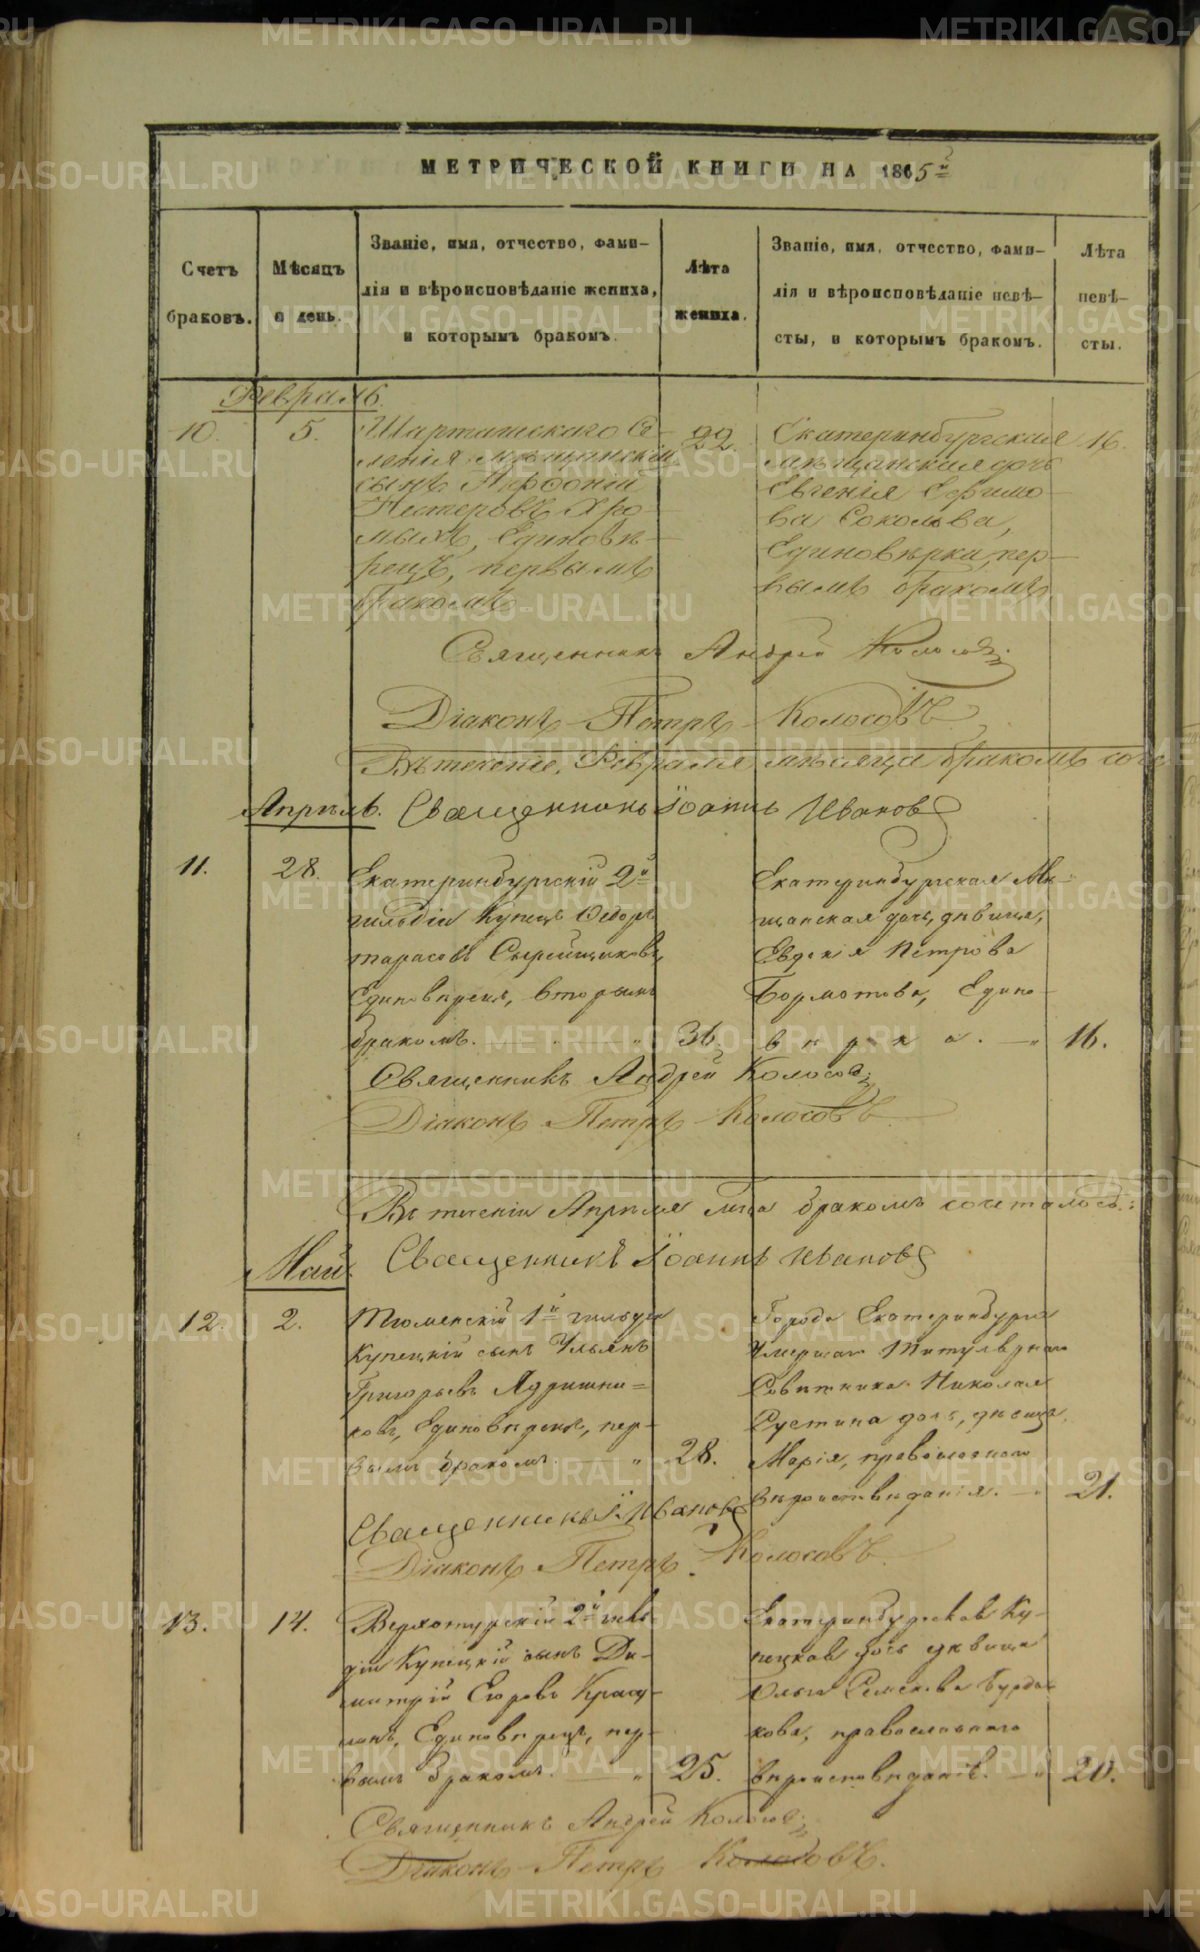 МЕТРИЧЕСКОЙ КНИГИ НА 1865й
Счетъ
браковъ.
Мѣсяцъ
и день.
Званіе, имя, отчество, фами-
лія и вѣроисповѣданіе жениха,
и которымъ бракомъ.
Лѣта
жениха.
Званіе, имя, отчество, фами-
лія и вѣроисповѣданіе невѣ-
сты, и которымъ бракомъ.
Лѣта
невѣ-
сты.
Февраль.
10.
5.
Шарташскаго Се-
ленія мѣщанскій
сынъ
Нестеровъ Хро-
мыхъ, Единовѣ-
рецъ, первымъ
бракомъ
22.
Екатеринбургская
мѣщанская дочь
Евгенія Ефимо-
ва Соколова,
Единовѣрка, пер-
вымъ бракомъ
16.
Священникъ Андрей Колосов
Діаконъ Петръ Колосовъ
Въ теченіе Февраля мѣсяца бракомъ соче
Апрѣль. Священникъ Іоаннъ Иванов
11.
28.
Екатеринбургскій 2й
гильдіи Купецъ Ѳедоръ
Тарасовъ Сыромщиковъ,
Единовѣрецъ, вторымъ
бракомъ.
36.
Екатеринбургская Мѣ-
щанская дочь, дѣвица,
Евдокія Петрова
Бормотова, Едино-
вѣрка.
16.
Священникъ Андрей Колосов
Діаконъ Петръ Колосовъ
Въ теченіи Апрѣля мца бракомъ сочеталось:
Май. Священникъ Іоаннъ Иванов
12.
2.
Тюменскій 1й гильдіи
Купецкій сынъ Ульянъ
Григорьевъ Ядрышни=
ковъ, Единовѣрецъ, пер-
вымъ бракомъ.
28.
Города Екатеринбурга
Умершаго Титулярнаго
Совѣтника Николая
дочь, дѣвица,
Марія, православнаго
вѣроисповѣданія.
21.
Священникъ І. Иванов
Діаконъ Петръ Колосовъ.
13.
14.
Верхотурскій 2й гиль-
діи Купецкій сынъ Ди-
митрій Егоровъ Красу-
линъ, Единовѣрецъ, пер-
вымъ бракомъ.
25.
Екатеринбургская Ку-
пецкая дочь дѣвица
Ольга Семенова Бурда-
кова, православнаго
вѣроисповѣданія.
20.
Священникъ Андрей Колосов
Діаконъ Петръ Колосовъ.
METRIKI.GASO-URAL.RU